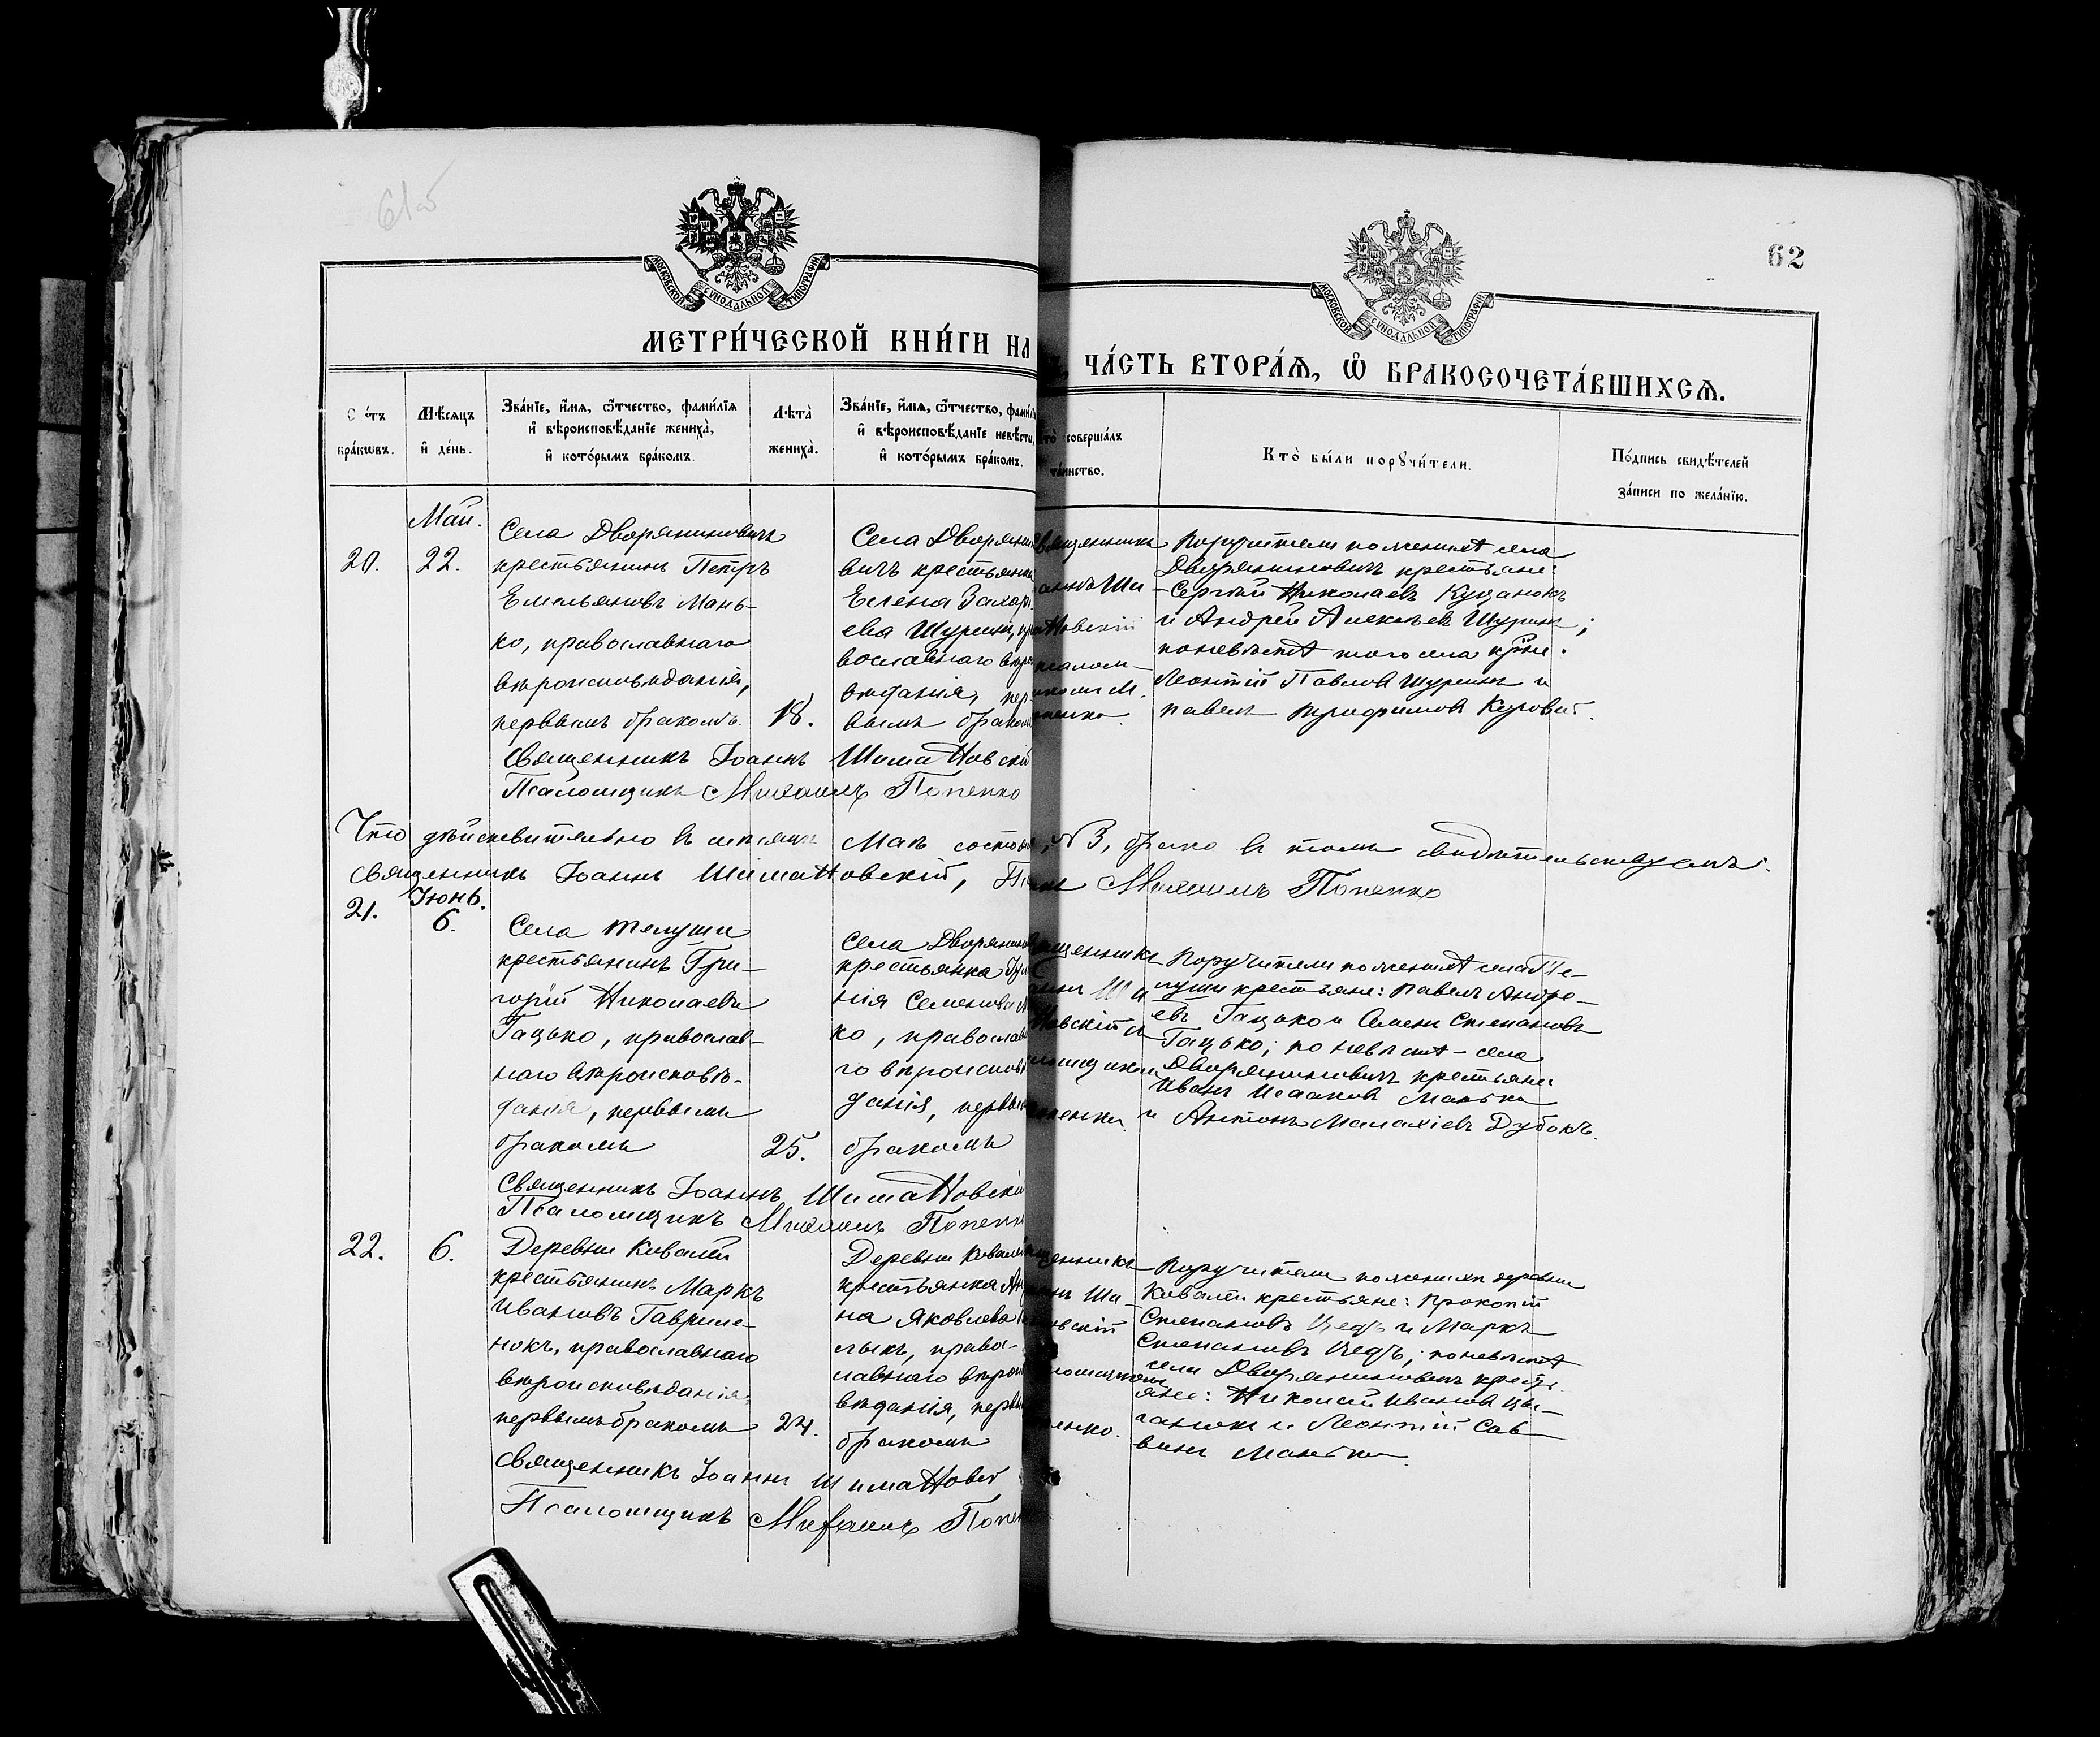 61об
62
МОСКОВСКОЙ СѴНОДАЛЬНОЙ ТИПОГРАФІИ
МОСКОВСКОЙ СѴНОДАЛЬНОЙ ТИПОГРАФІИ
МЕТРИ́ЧЕСКОЙ КНИ́ГИ НА
ЧА́СТЬ ВТОРА́Ѧ, Ѽ БРАКОСОЧЕТА́ВШИХСѦ.
бра́кωвъ.
Мѣ́сяцъ
и҆ де́нь.
Зва́нїе, и҆́мѧ, ѻ҆́тчество, фами́лїѧ
и҆ вѣроисповѣ́данїе жениха̀,
и҆ кото́рымъ бра́комъ.
Лѣ́та
жениха̀.
Зва́нїе, и҆́мѧ, ѻ҆́тчество, фами́л
и҆ вѣроисповѣ́данїе невѣ́сты,
и҆ кото́рымъ бра́комъ.
соверша́лъ
та́инство.
Кто̀ бы́ли порꙋчи́тели.
По́дпись свидѣ́телей
за́писи по жела́нїю.
Май.
20.
22.
Села Дворяниновичъ
крестьянинъ Петръ
Емельяновъ Мань-
ко, православнаго
вѣроисповѣданія,
первымъ бракомъ.
18.
Села Дворянино
вичъ крестьянка
Елена Захарі
ева Шуринъ, пра
вославнаго вѣро
вѣданія, пер
вымъ бракомъ
вященникъ
аннъ Ши
Новскій
псалом
М.
пенко.
Поручители по женихѣ села
Дворяниновичъ крестьяне:
Сергѣй Николаевъ Куцанокъ
и Андрей Алексѣевъ Шуринъ;
по невѣстѣ того села крне.
Леонтій Павловъ Шуринъ и
Павелъ Трифимовъ
Священникъ Іоаннъ ШимаНовскій
Псаломщикъ Михаилъ Попенко
Что дѣйствительно въ мѣсяцѣ Маѣ состоя №3, брако въ томъ свидѣтельствуемъ:
священникъ Іоаннъ ШимаНовскій, Пс Михаилъ Попенко
Іюнь.
21.
6.
Села Телуши
крестьянинъ Гри-
горій Николаевъ
Гацько, православ-
наго вѣроисповѣ-
данія, первымъ
бракомъ
25.
Села Дворянинов
крестьянка
нія Семенова М
ко, православна
го вѣроисповѣ
данія, первымъ
бракомъ
ященникъ
Ши
Новскій и
ломщикъ
пенко.
Поручители по женихѣ села Те-
луши крестьяне: Павелъ Андре-
евъ Гацько и Семенъ Степановъ
Гацько; по невѣстѣ - села
Дворяниновичъ крестьяне
Иванъ Исааковъ Манько
и Антонъ Малахіевъ Дубокъ.
Священникъ Іоаннъ ШимаНовскій
Псаломщикъ Михаилъ Попенко
22.
6.
Деревни Ковали
крестьянинъ Маркъ
Ивановъ Гавриле-
нокъ, православнаго
вѣроисповѣданія,
первымъ бракомъ
24.
Деревни Ковали
крестьянка Ан
на Яковлева
лыкъ, право-
славнаго вѣрои
вѣданія, первы
бракомъ
щенникъ
Ши
овскій
ломщикъ
енко.
Поручители по женихѣ деревни
Ковали крестьяне: Прокопій
Степановъ и Маркъ
Степановъ; по невѣстѣ
села Дворяниновичъ кресть
яне: Николай Ивановъ Цы-
ганокъ и Леонтій Сав
винъ Манько.
Священникъ Іоаннъ ШимаНовс
Псаломщикъ Михаилъ Попен